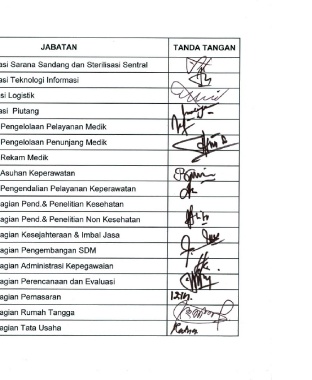 JABATAN TANDA TANGAN
asi Sarana Sandang dan Sterilisasi Sentral
asi Teknologi Informasi
si Logistik
asi Piutang
Pengelolaan Pelayanan Medik
Pengelolaan Penunjang Medik
Rekam Medik
Asuhan Keperawatan
Pengendalian Pelayanan Keperawatan
agian Pend.& Penelitian Kesehatan
agian Pend.& Penelitian Non Kesehatan
agian Kesejahteraan & Imbal Jasa
agian Pengembangan SDM
agian Administrasi Kepegawaian
agian Perencanaan dan Evaluasi
agian Pemasaran
agian Rumah Tangga
agian Tata Usaha